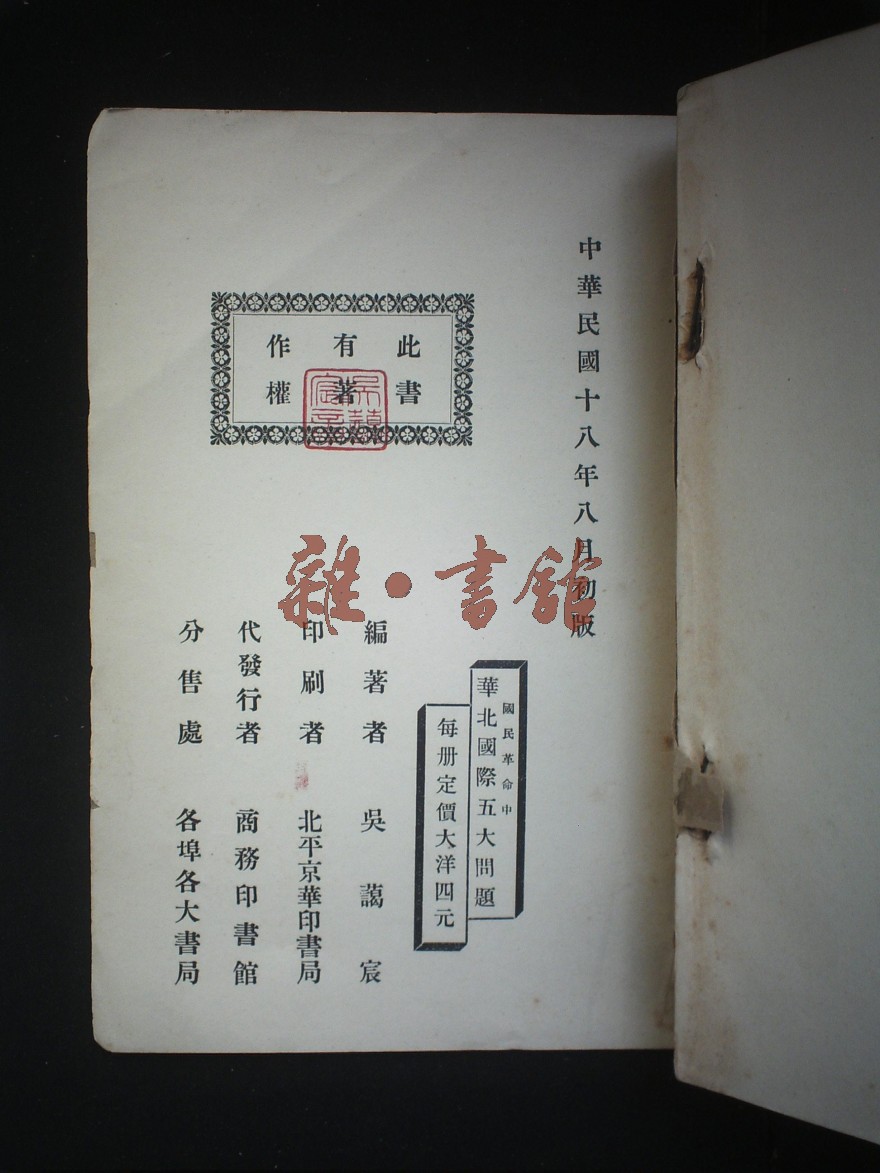 中華民國十八年八月初版
國民革命中
華北國際五大問題
每册定價大洋四元
此書
有著
作權
編著者 吳藹宸
印刷者 北平京華印書局
代發行者 商務印書館
分售處 各埠各大書局
雜·書館